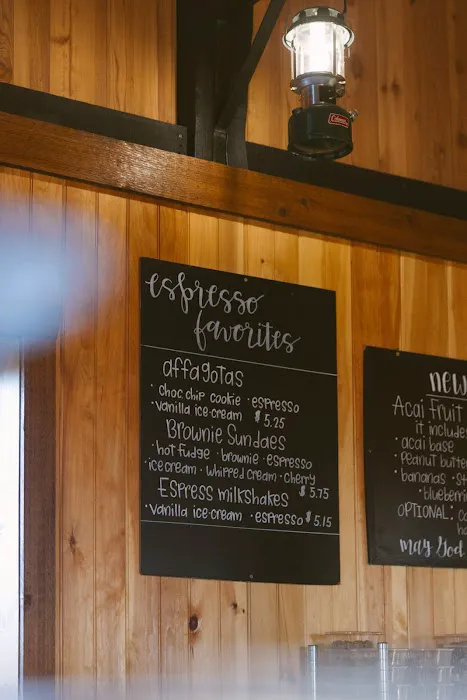 Coleman
espresso
favorites
affagotas
· choc chip cookie · espresso
· vanilla ice·cream $5.25
Brownie Sundaes
· hot fudge · brownie · espresso
· ice cream · whipped cream · cherry
$5.75
Espress milkshakes
· vanilla ice·cream · espresso $5.15
new
Acai Fruit
it include
· acai base
· peanut butter
· bananas · st
· blueberri
OPTIONAL:
may God